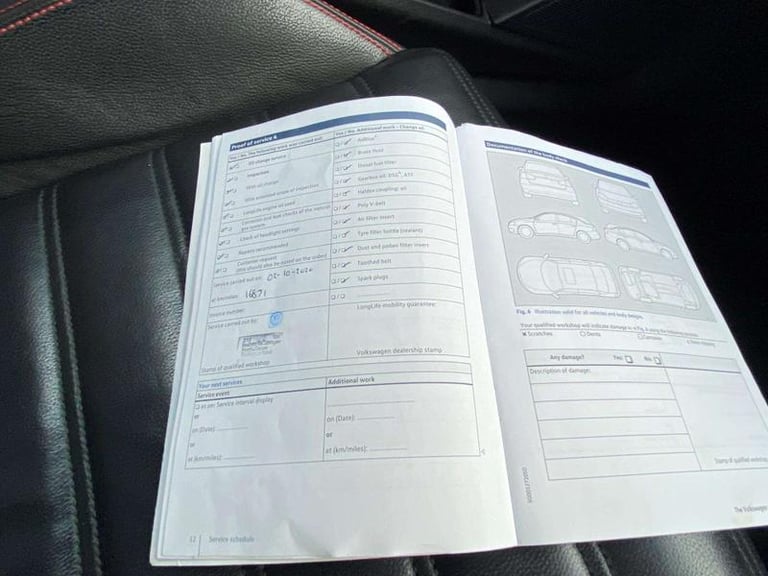 Proof of service 4
Yes / No The following work was carried out:
Oil change service
Inspection
With oil change
With extended scope of inspection
LongLife engine oil used
Corrosion and leak checks of the natural
gas system
Check of headlight settings
Repairs recommended
Customer request
(this should also be noted on the order)
Service carried out on:
at km/miles: 16871
Invoice number:
Service carried out by:
Stamp of qualified workshop
Yes / No Additional work – Change of:
AdBlue
Brake fluid
Diesel fuel filter
Gearbox oil:
Haldex coupling: oil
Poly V-belt
Air filter insert
Tyre filler bottle (sealant)
Dust and pollen filter insert
Toothed belt
Spark plugs
LongLife mobility guarantee:
Volkswagen dealership stamp
Your next services
Service event
as per Service interval display
or
on (Date):
or
at (km/miles):
Additional work
on (Date):
or
at (km/miles):
12 Service schedule
Documentation of the body check
Fig. 6 Illustration valid for all vehicles and body designs.
Your qualified workshop will indicate damage in
Scratches
Dents
Any damage? Yes No
Description of damage:
Stamp of qualified workshop
The Volkswagen